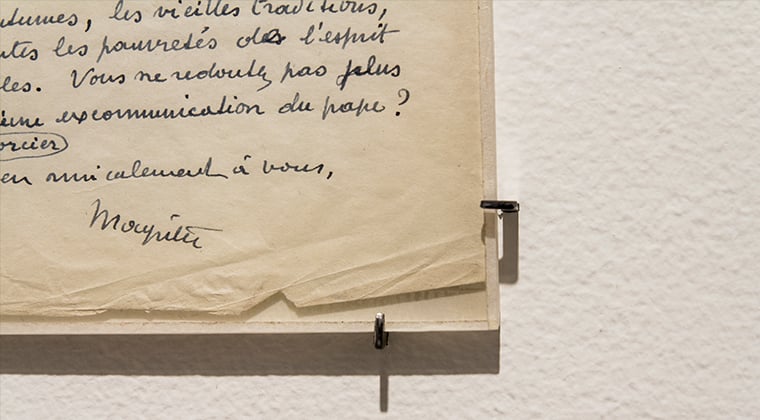 utumes, les vieilles traditions,
utes les pauvretés de l'esprit
les. Vous ne redoutez pas plus
ième excommunication du pape?
orcier
en amicalement à vous,
Magritte